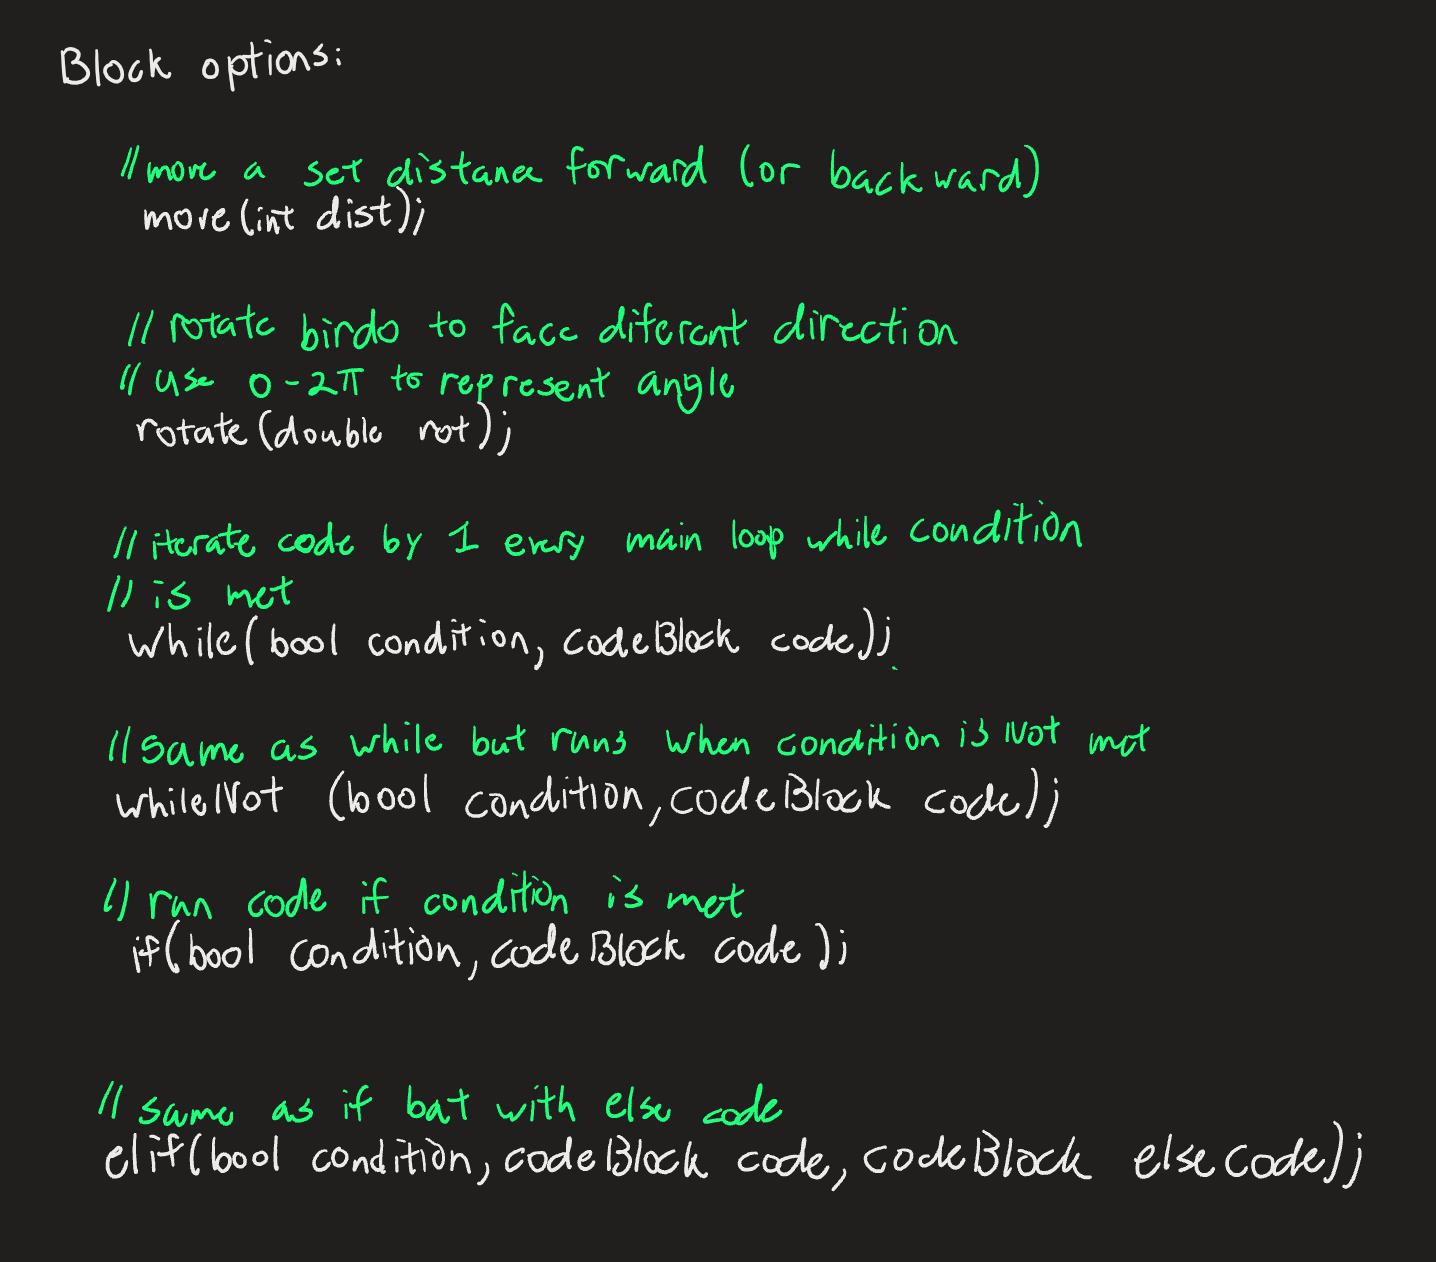 Block options:
//move a set distance forward (or backward)
move(int dist);
// rotate birdo to face diferent direction
// use 0-2π to represent angle
rotate(double rot);
// iterate code by 1 every main loop while condition
// is met
while(bool condition, codeBlock code);
//same as while but runs when condition is Not met
whileNot (bool condition, codeBlock code);
// run code if condition is met
if(bool condition, codeBlock code);
// same as if but with else code
elif(bool condition, codeBlock code, codeBlock elseCode);